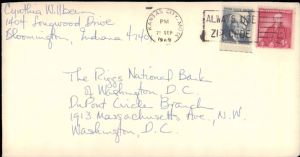 Cynthia Wilbern
1404 Longwood Drive
Bloomington, Indiana 47401
KANSAS CITY, MO.
PM
21 SEP
1969
ALWAYS USE
ZIP CODE
The Riggs National Bank
of Washington D.C.
DuPont Circle Branch
1913 Massachusetts Ave., N.W.
Washington, D.C.